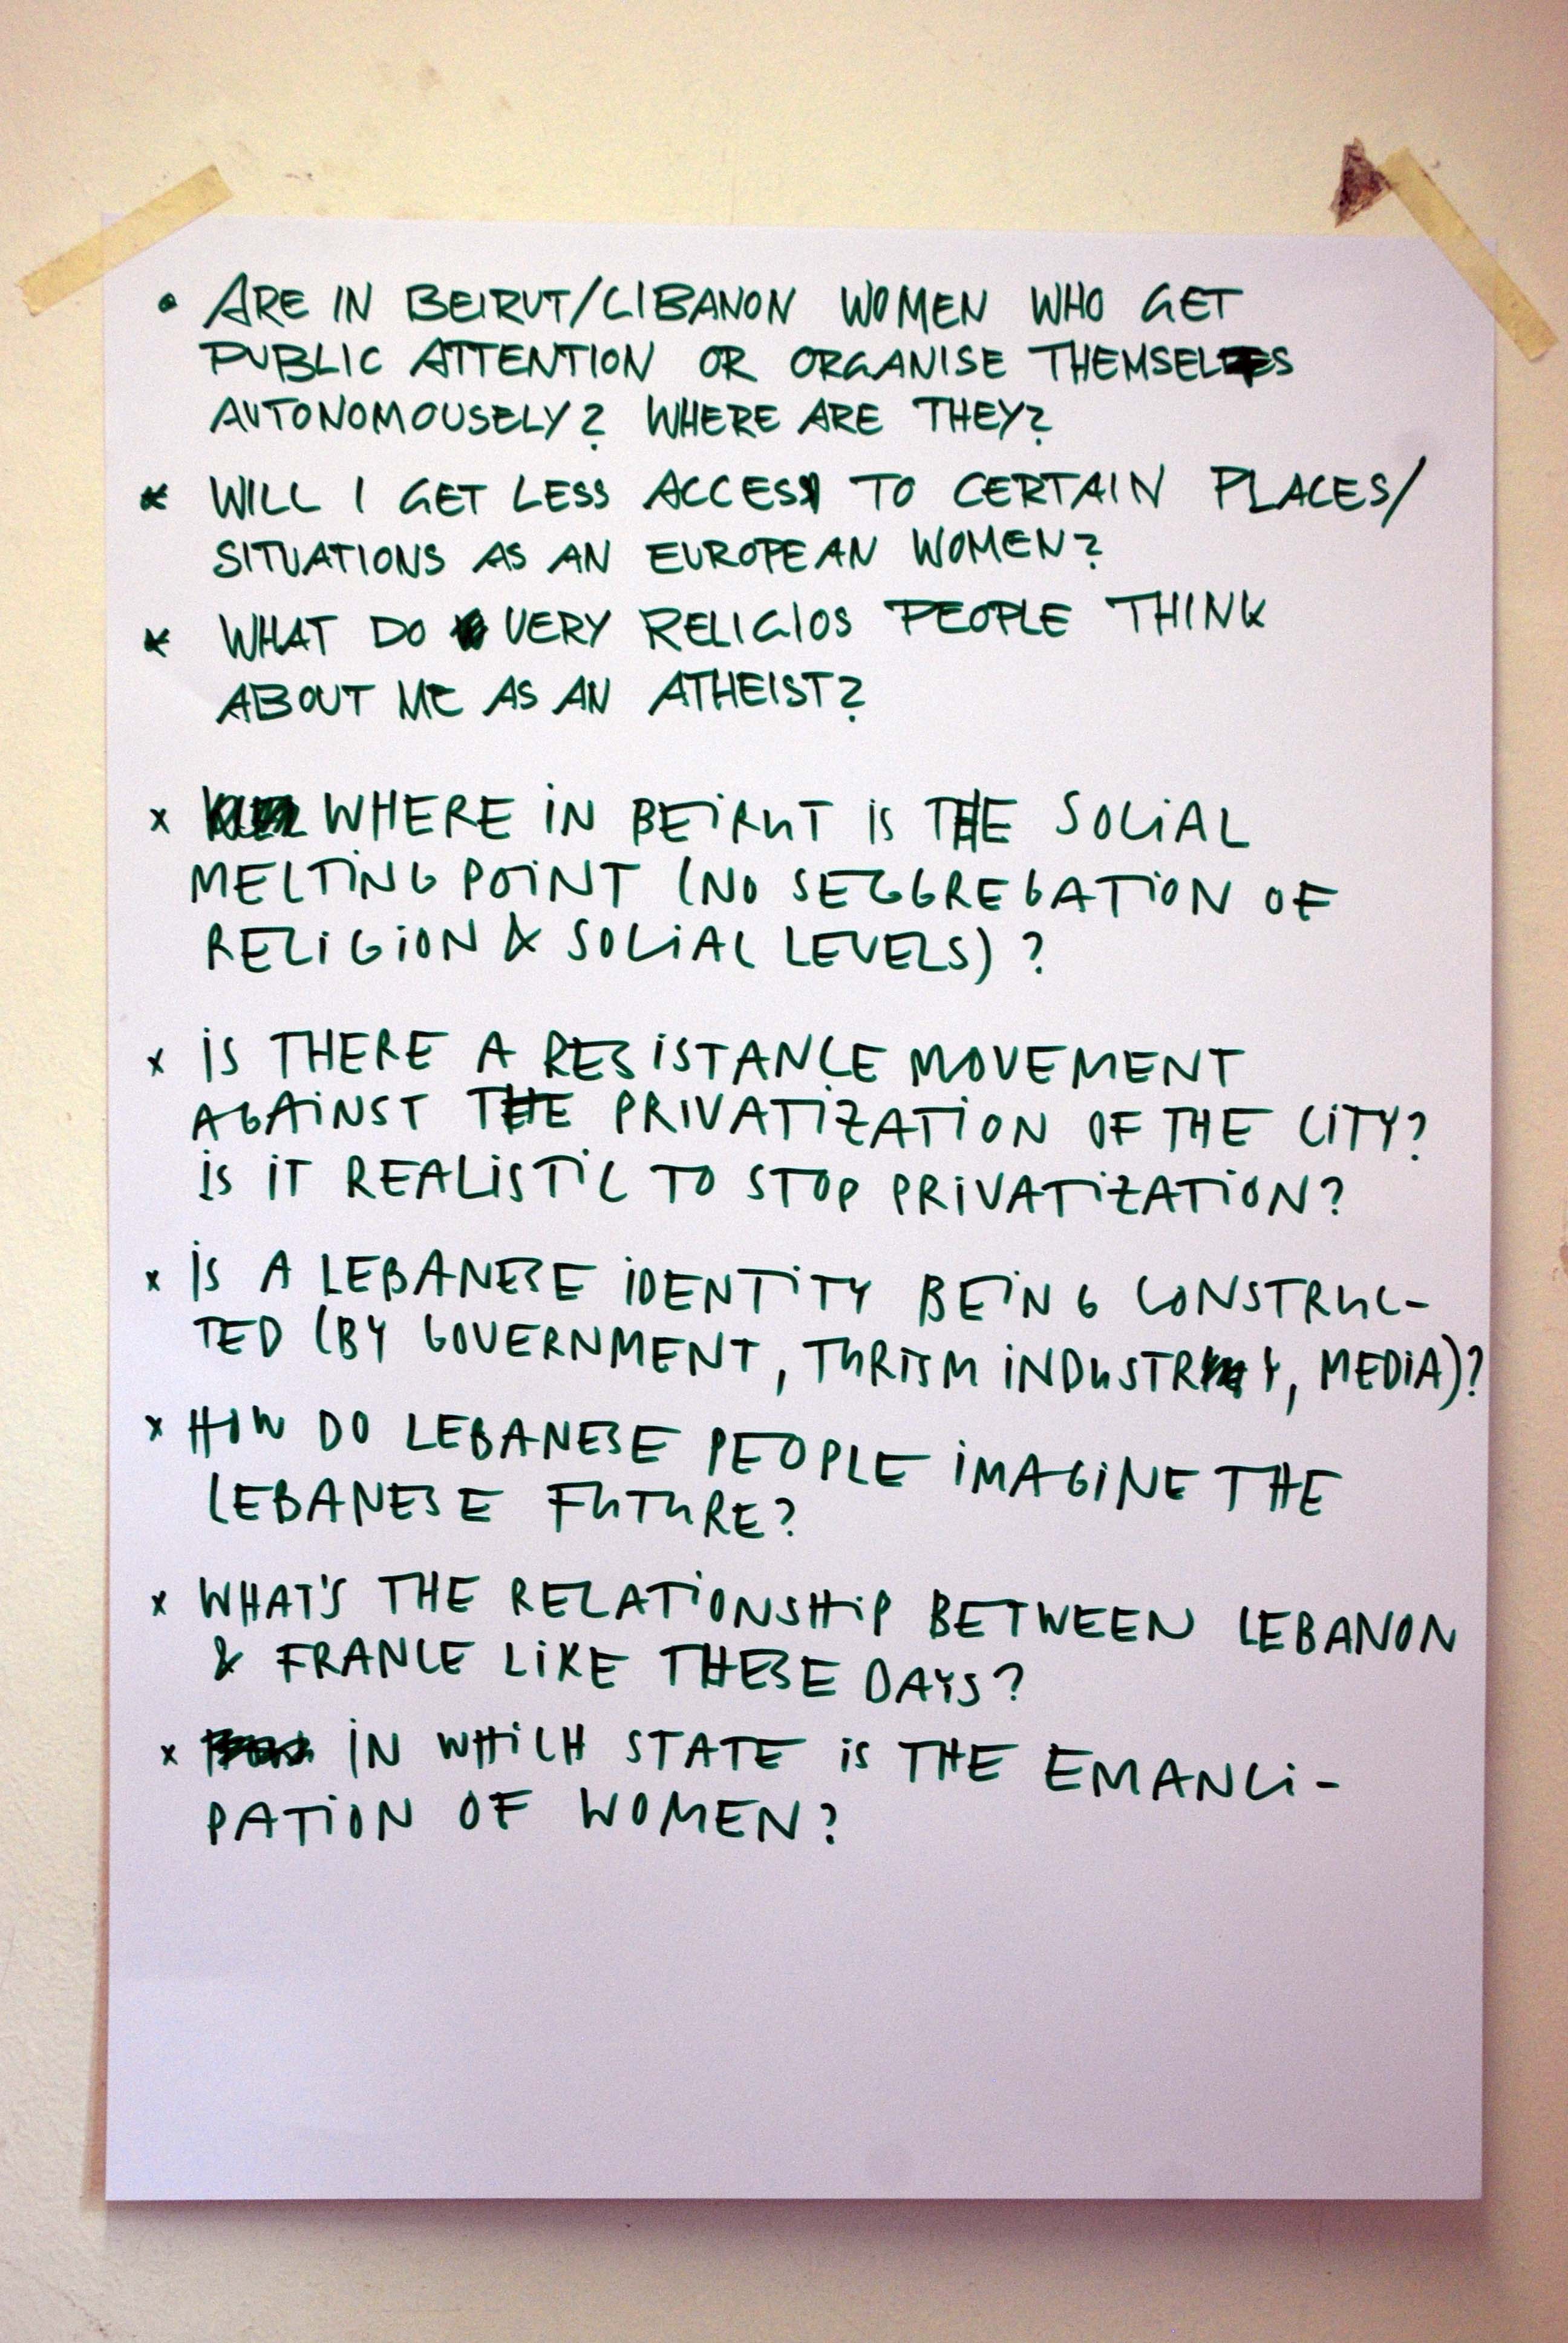 • ARE IN BEIRUT/LIBANON WOMEN WHO GET
PUBLIC ATTENTION OR ORGANISE THEMSELFES
AUTONOMOUSELY? WHERE ARE THEY?
* WILL I GET LESS ACCESS TO CERTAIN PLACES/
SITUATIONS AS AN EUROPEAN WOMEN?
* WHAT DO VERY RELIGIOS PEOPLE THINK
ABOUT ME AS AN ATHEIST?
x WHERE IN BEIRUT IS THE SOCIAL
MELTING POINT (NO SEGGREGATION OF
RELIGION & SOCIAL LEVELS)?
x IS THERE A RESISTANCE MOVEMENT
AGAINST THE PRIVATIZATION OF THE CITY?
IS IT REALISTIC TO STOP PRIVATIZATION?
x IS A LEBANESE IDENTITY BEING CONSTRUC-
TED (BY GOVERNMENT, TURISM INDUSTRY, MEDIA)?
x HOW DO LEBANESE PEOPLE IMAGINE THE
LEBANESE FUTURE?
x WHAT'S THE RELATIONSHIP BETWEEN LEBANON
& FRANCE LIKE THESE DAYS?
x IN WHICH STATE IS THE EMANCI-
PATION OF WOMEN?